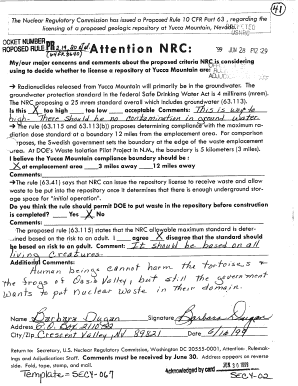 41
The Nuclear Regulatory Commission has issued a Proposed Rule 10 CFR Part 63, regarding the
licensing of a proposed geologic repository at Yucca Mountain, Nevada.
DOCKET NUMBER
PROPOSED RULE PR
Attention NRC:
'99 JUN 28 P12:29
My/our major concerns and comments about the proposed criteria NRC is considering
using to decide whether to license a repository at Yucca Mountain are:
Radionuclides released from Yucca Mountain will primarily be in the groundwater. The
groundwater protection standard in the federal Safe Drinking Water Act is 4 millirems (mrem).
The NRC proposing a 25 mrem standard overall which includes groundwater (63.113).
Is this X too high too low acceptable Comments: This is way to
high. There should be no contamination in ground water.
The rule (63.113 and 63.113(b)) proposes determining compliance with the maximum ra-
diation dose standard at a boundary 12 miles from the emplacement area. For comparison
purposes, the Swedish government sets the boundary at the edge of the waste emplacement
area. At DOE's Waste Isolation Pilot Project in N.M., the boundary is 5 kilometers (3 miles).
I believe the Yucca Mountain compliance boundary should be :
X at emplacement area 3 miles away 12 miles away
Comments:
The rule (63.41) says that NRC can issue the repository license to receive waste and allow
waste to be put into the repository once it determines that there is enough underground stor-
age space for "initial operation".
Do you think the rule should permit DOE to put waste in the repository before construction
is completed? Yes X No
Comments:
The proposed rule (63.115) states that the NRC allowable maximum standard is deter-
mined based on the risk to an adult. I agree X disagree that the standard should
be based on risk to an adult. Comment: It should be based on all
living creatures.
Additional Comments:
Human beings cannot harm the tortoises &
the frogs of Oasis Valley, but still the government
wants to put nuclear waste in their domain.
Name Barbara Dugan Signature Barbara Dugan
Address P.O. Box
City/Zip Crescent Valley, NV 89821 Date
Return to: Secretary, U.S. Nuclear Regulatory Commission, Washington DC 20555-0001, Attention: Rulemak-
ings and Adjudication Staff. Comments must be received by June 30. Address appears on reverse
side. Fold, tape, stamp, and mail.
Acknowledged by card
Template=SECY-067 SECY-02